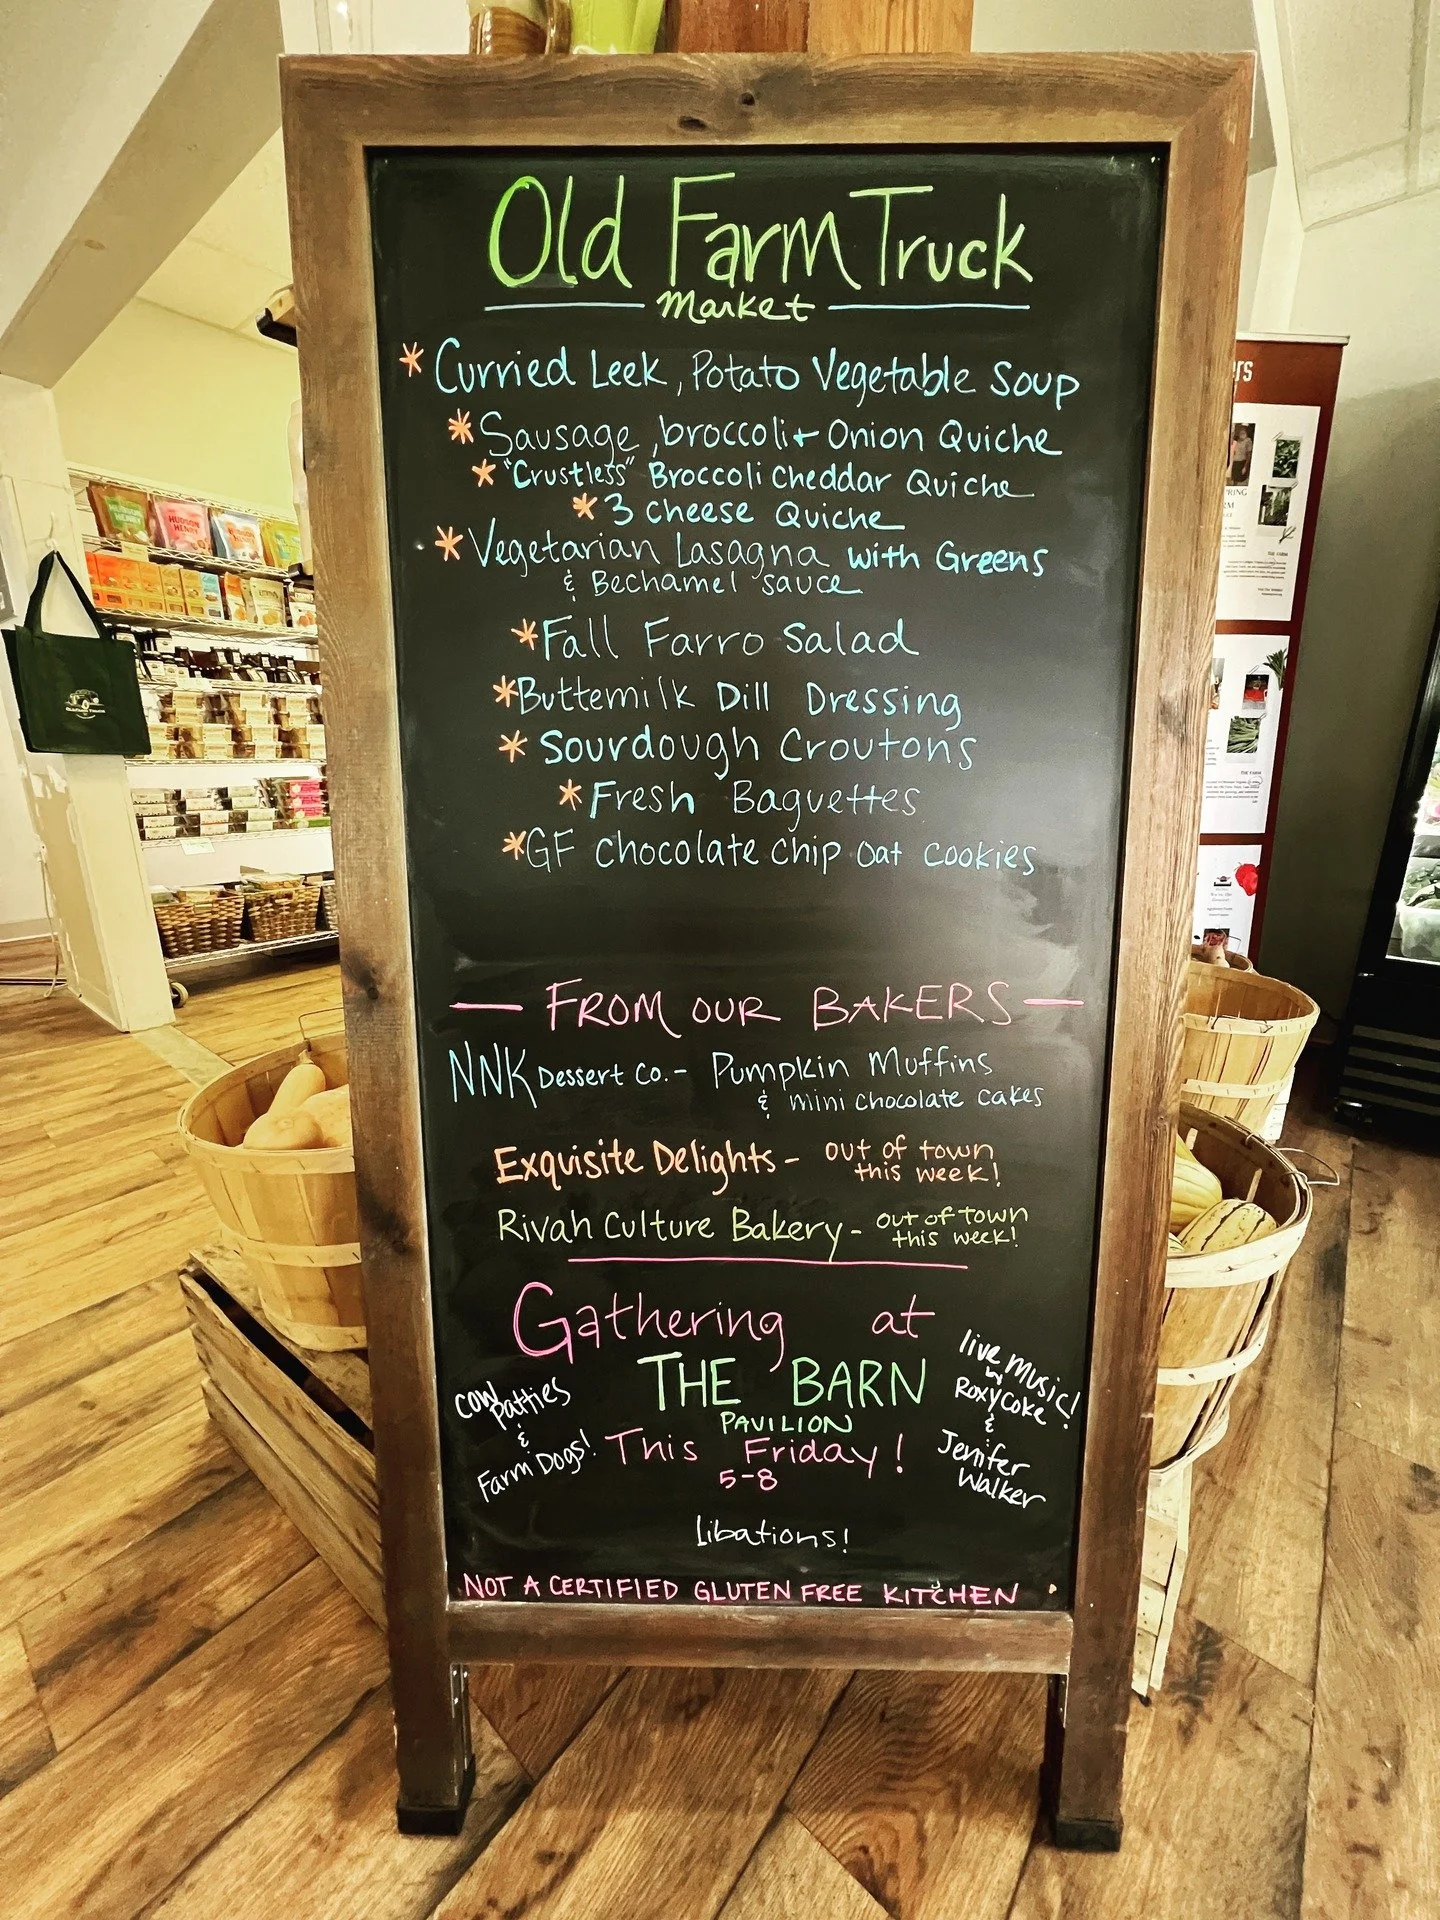 Old Farm Truck
Market
* Curried Leek, Potato Vegetable Soup
* Sausage, broccoli + Onion Quiche
* "Crustless" Broccoli Cheddar Quiche
* 3 cheese Quiche
* Vegetarian Lasagna with Greens
& Bechamel sauce
* Fall Farro Salad
* Buttermilk Dill Dressing
* Sourdough Croutons
* Fresh Baguettes
* GF Chocolate Chip Oat Cookies
— FROM OUR BAKERS —
NNK Dessert Co. - Pumpkin Muffins
& mini chocolate cakes
Exquisite Delights - out of town
this week!
Rivah Culture Bakery - out of town
this week!
Gathering at
THE BARN
PAVILION
This Friday!
5-8
Cow Patties
&
Farm Dogs!
live Music!
w
Roxy Coke
&
Jenifer
Walker
Libations!
NOT A CERTIFIED GLUTEN FREE KITCHEN
HUDSON
HENRY
THE FARM
THE FARM